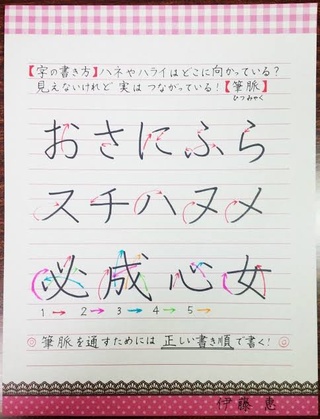 【字の書き方】ハネやハライはどこに向かっている?
見えないけれど 実は つながっている!【筆脈】
ひつみゃく
おさにふら
スチハヌメ
必成心女
1 → 2 → 3 → 4 → 5 →
◎ 筆脈を通すためには 正しい書き順で書く! ◎
伊藤 恵